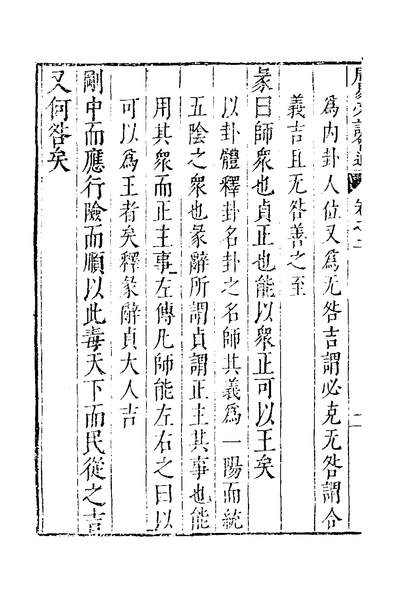 為内卦人位又為无咎吉謂必克无咎謂合
義吉且无咎善之至
彖曰師衆也貞正也能以衆正可以王矣
以卦體釋卦名卦之名師其義為一陽而統
五陰之衆也彖辭所謂貞謂正主其事也能
用其衆而正主事左傳凡師能左右之曰以
可以為王者矣釋彖辭貞大人吉
剛中而應行險而順以此毒天下而民從之吉
又何咎矣